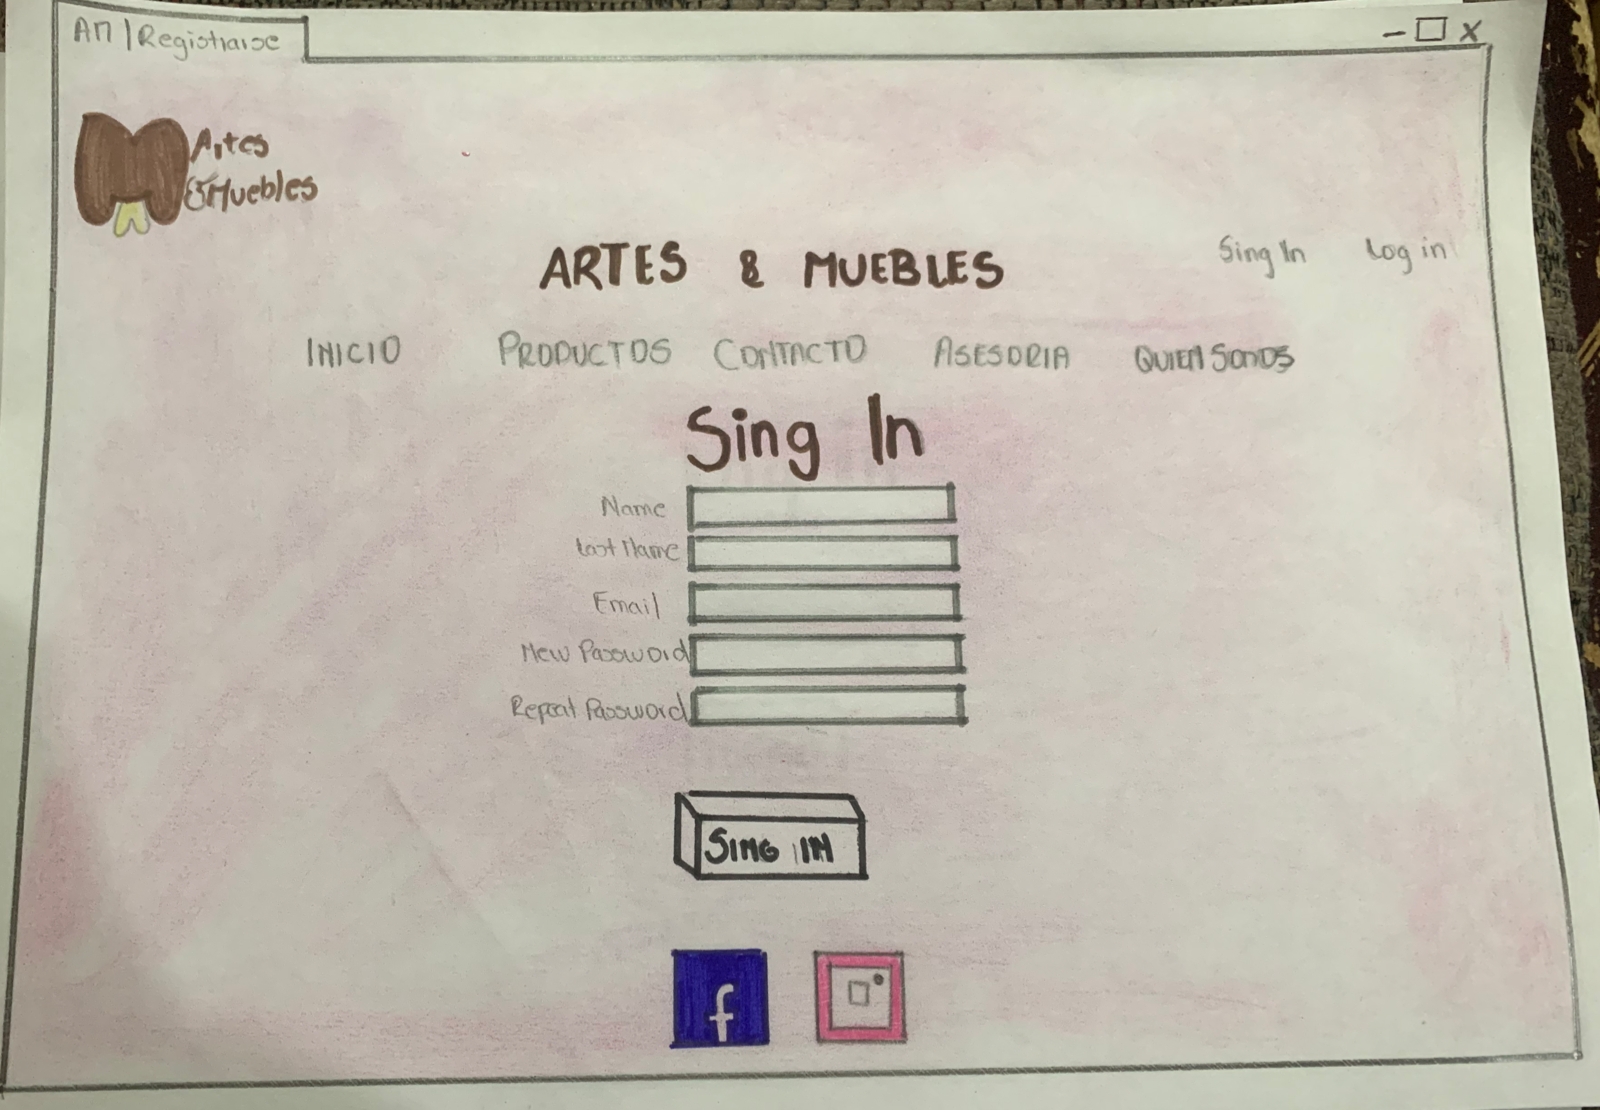 AM | Registrarse
Artes
& Muebles
ARTES & MUEBLES
Sing In Log in
INICIO PRODUCTOS CONTACTO ASESORIA QUIEN SOMOS
Sing In
Name
Last Name
Email
New Password
Repeat Password
SING IN
f